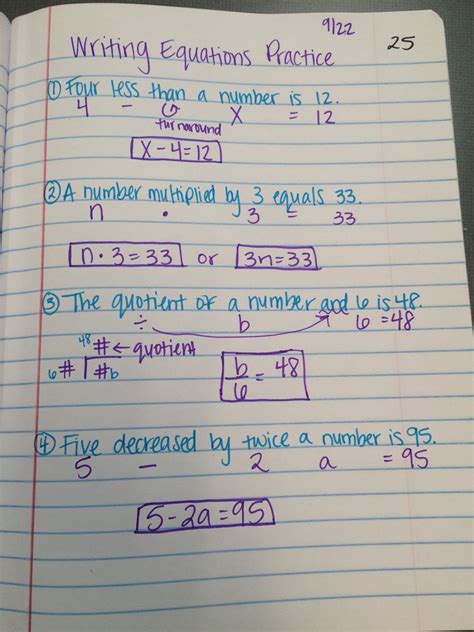 9/22
25
Writing Equations Practice
① Four less than a number is 12.
4 - x = 12
turnaround
x - 4 = 12
② A number multiplied by 3 equals 33.
n · 3 = 33
n · 3 = 33 or 3n = 33
③ The quotient of a number and 6 is 48.
÷ b 6 = 48
48 # ← quotient
6 # #b
b/6 = 48
④ Five decreased by twice a number is 95.
5 - 2 a = 95
5 - 2a = 95